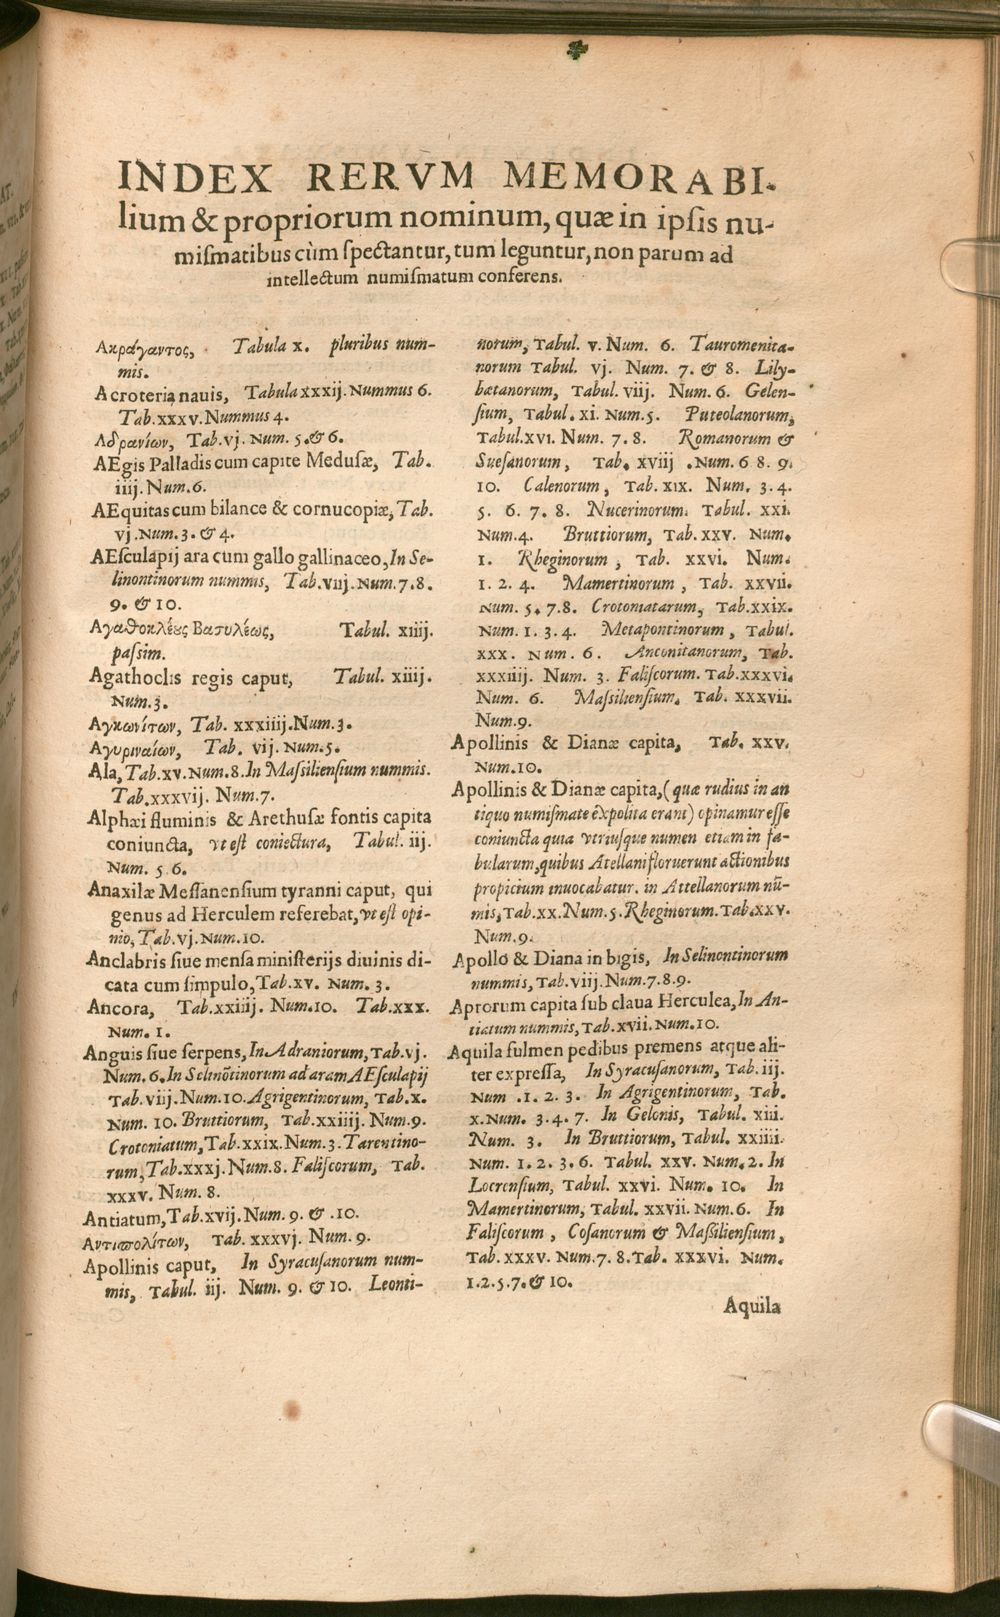 INDEX RERVM MEMORABI-
lium & propriorum nominum, quæ in ipſis nu-
miſmatibus cùm ſpectantur, tum leguntur, non parum ad
intellectum numiſmatum conferens.
Ακράγαντος, Tabula x. pluribus num-
mis.
Acroteria nauis, Tabula xxxij. Nummus 6.
Tab. xxxv. Nummus 4.
Αδρανίων, Tab. vj. Num. 5. & 6.
AEgis Palladis cum capite Meduſæ, Tab.
iiij. Num. 6.
AEquitas cum bilance & cornucopiæ, Tab.
vj. Num. 3. & 4.
AEſculapij ara cum gallo gallinaceo, In Se-
linontinorum nummis, Tab. viij. Num. 7. 8.
9. & 10.
Αγαθοκλέȣς Βασυλέως, Tabul. xiiij.
paſsim.
Agathoclis regis caput, Tabul. xiiij.
Num. 3.
Αγκωνίτων, Tab. xxxiiij. Num. 3.
Αγυριναίων, Tab. vij. Num. 5.
Ala, Tab. xv. Num. 8. In Maſsilienſium nummis.
Tab. xxxvij. Num. 7.
Alphæi fluminis & Arethuſæ fontis capita
coniuncta, vt eſt coniectura, Tabul. iij.
Num. 5 6.
Anaxilæ Meſſanenſium tyranni caput, qui
genus ad Herculem referebat, vt eſt opi-
nio, Tab. vj. Num. 10.
Anclabris ſiue menſa miniſterijs diuinis di-
cata cum ſimpulo, Tab. xv. Num. 3.
Ancora, Tab. xxiiij. Num. 10. Tab. xxx.
Num. 1.
Anguis ſiue ſerpens, In Adraniorum, Tab. vj.
Num. 6. In Selinõtinorum ad aram AEſculapij
Tab. viij. Num. 10. Agrigentinorum, Tab. x.
Num. 10. Bruttiorum, Tab. xxiiij. Num. 9.
Crotoniatum, Tab. xxix. Num. 3. Tarentino-
rum, Tab. xxxj. Num. 8. Faliſcorum, Tab.
xxxv. Num. 8.
Antiatum, Tab. xvij. Num. 9. & .10.
Αντιπολίτων, Tab. xxxvj. Num. 9.
Apollinis caput, In Syracuſanorum num-
mis, Tabul. iij. Num. 9. & 10. Leonti-
norum, Tabul. v. Num. 6. Tauromenita-
norum Tabul. vj. Num. 7. & 8. Lily-
bætanorum, Tabul. viij. Num. 6. Gelen-
ſium, Tabul. xi. Num. 5. Puteolanorum,
Tabul. xvi. Num. 7. 8. Romanorum &
Sueſanorum, Tab. xviij . Num. 6 8. 9.
10. Calenorum, Tab. xix. Num. 3. 4.
5. 6. 7. 8. Nucerinorum. Tabul. xxi.
Num. 4. Bruttiorum, Tab. xxv. Num.
1. Rheginorum, Tab. xxvi. Num.
1. 2. 4. Mamertinorum, Tab. xxvii.
Num. 5. 7. 8. Crotoniatarum, Tab. xxix.
Num. 1. 3. 4. Metapontinorum, Tabul.
xxx. Num. 6. Anconitanorum, Tab.
xxxiiij. Num. 3. Faliſcorum. Tab. xxxvi.
Num. 6. Maſsilienſium, Tab. xxxvii.
Num. 9.
Apollinis & Dianæ capita, Tab. xxv.
Num. 10.
Apollinis & Dianæ capita, (quæ rudius in an
tiquo numiſmate expolita erant) opinamur eſſe
coniuncta quia vtriuſque numen etiam in fa-
bularum, quibus Atellani floruerunt actionibus
propicium inuocabatur. in Attellanorum nũ-
mis, Tab. xx. Num. 5. Rheginorum. Tab. xxv.
Num. 9.
Apollo & Diana in bigis, In Selinontinorum
nummis, Tab. viij. Num. 7. 8. 9.
Aprorum capita ſub claua Herculea, In An-
tiatum nummis, Tab. xvii. Num. 10.
Aquila fulmen pedibus premens atque ali-
ter expreſſa, In Syracuſanorum, Tab. iij.
Num . 1. 2. 3. In Agrigentinorum, Tab.
x. Num. 3. 4. 7. In Gelonis, Tabul. xiii.
Num. 3. In Bruttiorum, Tabul. xxiiii.
Num. 1. 2. 3. 6. Tabul. xxv. Num. 2. In
Locrenſium, Tabul. xxvi. Num. 10. In
Mamertinorum, Tabul. xxvii. Num. 6. In
Faliſcorum, Coſanorum & Maſsilienſium,
Tab. xxxv. Num. 7. 8. Tab. xxxvi. Num.
1. 2. 5. 7. & 10.
Aquila